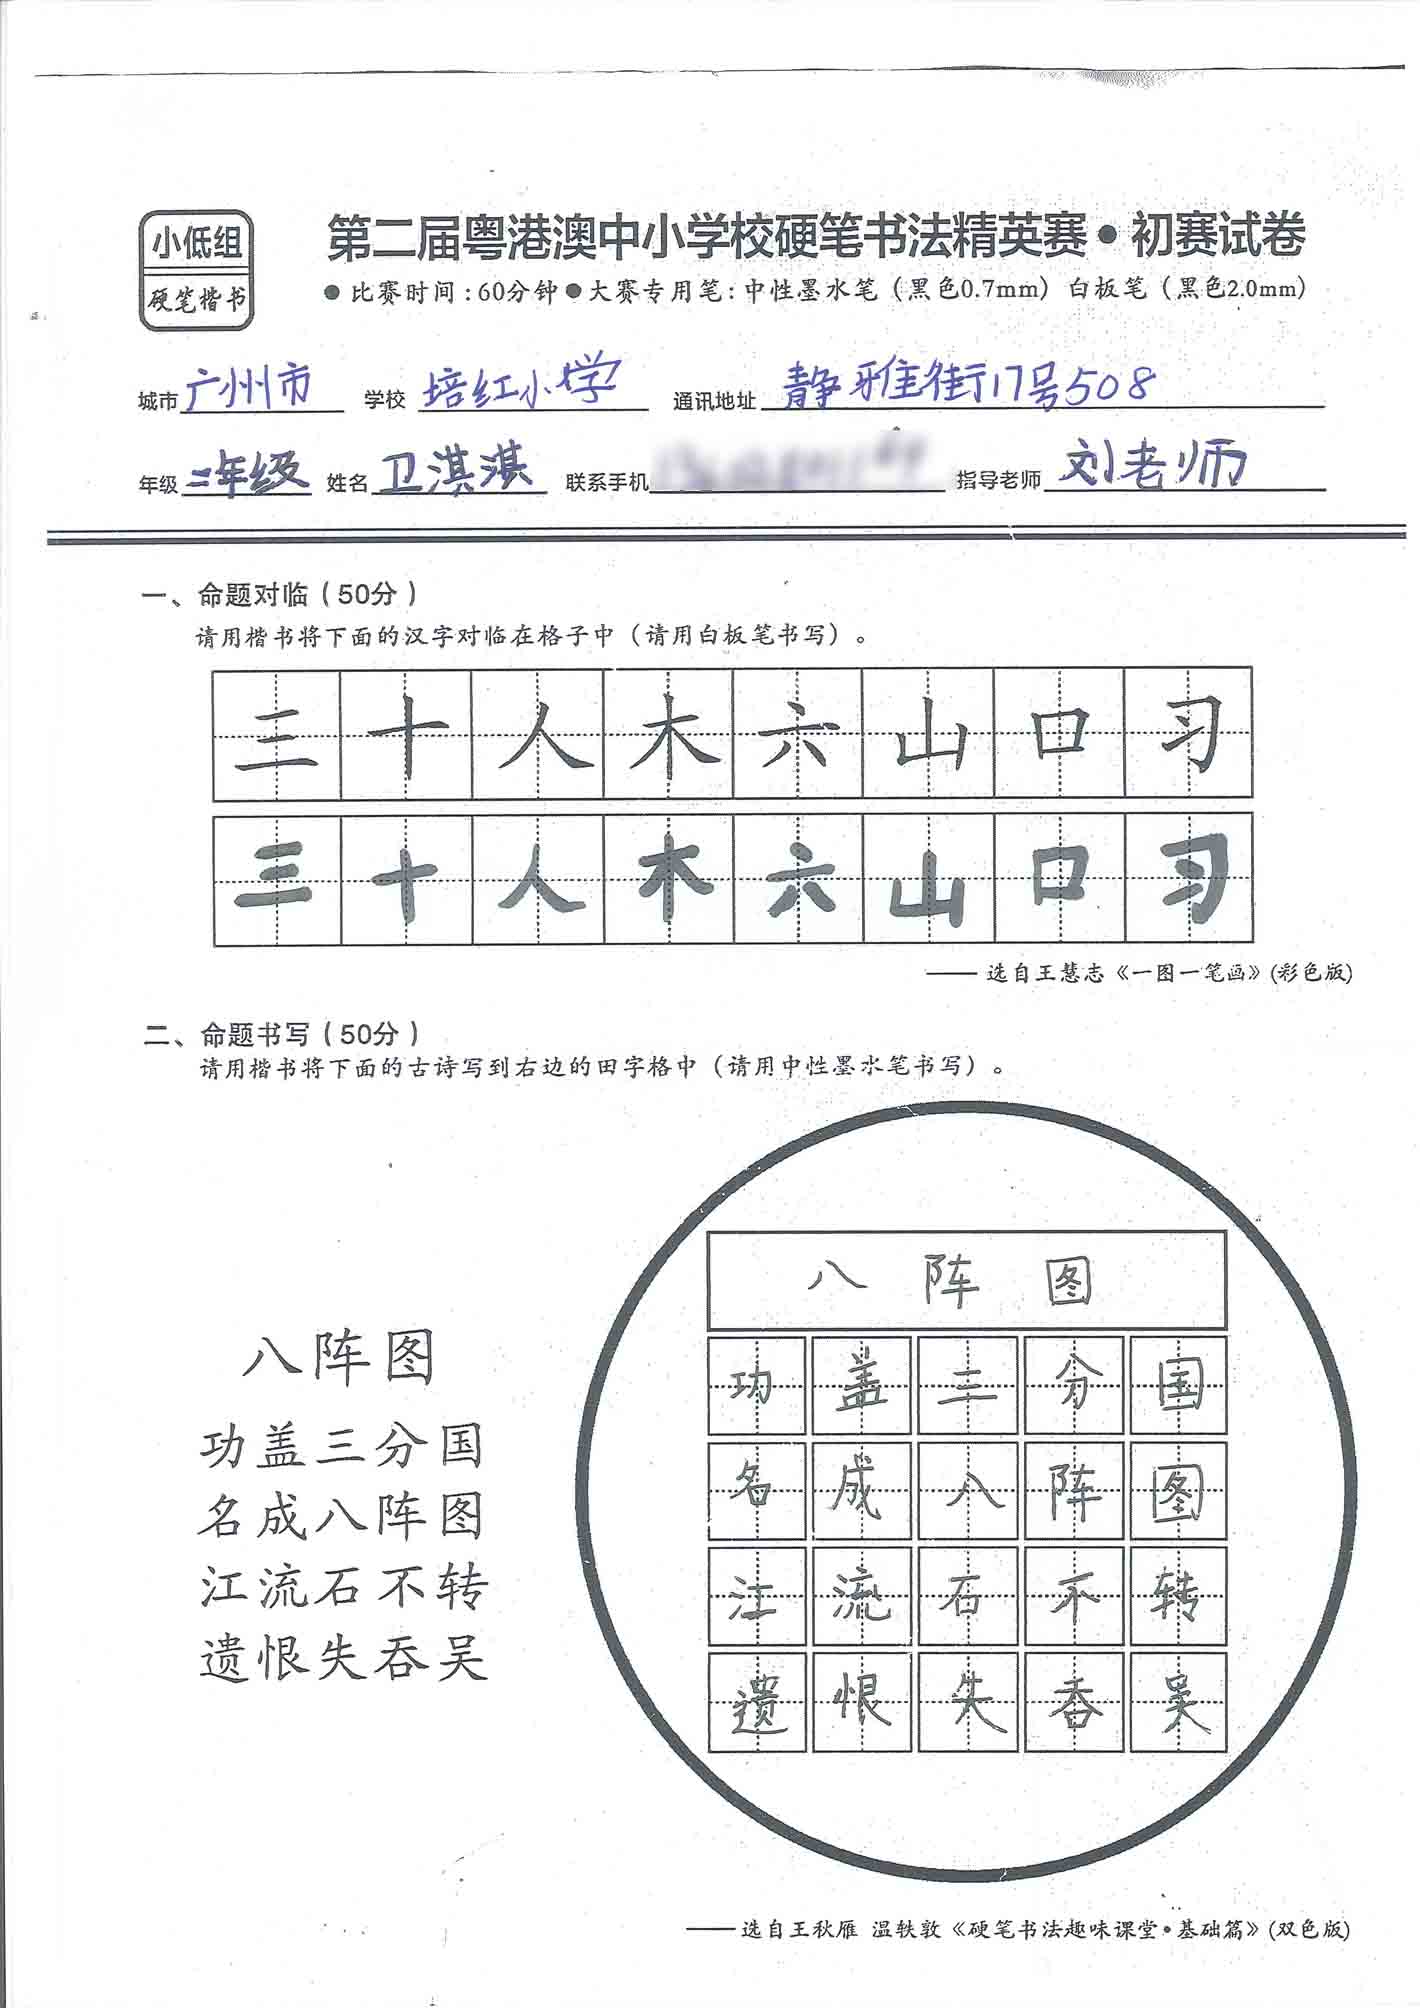 小低组
硬笔楷书
第二届粤港澳中小学校硬笔书法精英赛•初赛试卷
●比赛时间:60分钟●大赛专用笔:中性墨水笔(黑色0.7mm)白板笔(黑色2.0mm)
城市 广州市 学校 培红小学 通讯地址 静雅街17号508
年级 二年级 姓名 卫淇淇 联系手机 指导老师 刘老师
一、命题对临(50分)
请用楷书将下面的汉字对临在格子中(请用白板笔书写)。
三十人木六山口习
三十人木六山口习
——选自王慧志《一图一笔画》(彩色版)
二、命题书写(50分)
请用楷书将下面的古诗写到右边的田字格中(请用中性墨水笔书写)。
八阵图
功盖三分国
名成八阵图
江流石不转
遗恨失吞吴
八阵图
功盖三分国
名成八阵图
江流石不转
遗恨失吞吴
——选自王秋雁 温轶敦《硬笔书法趣味课堂•基础篇》(双色版)